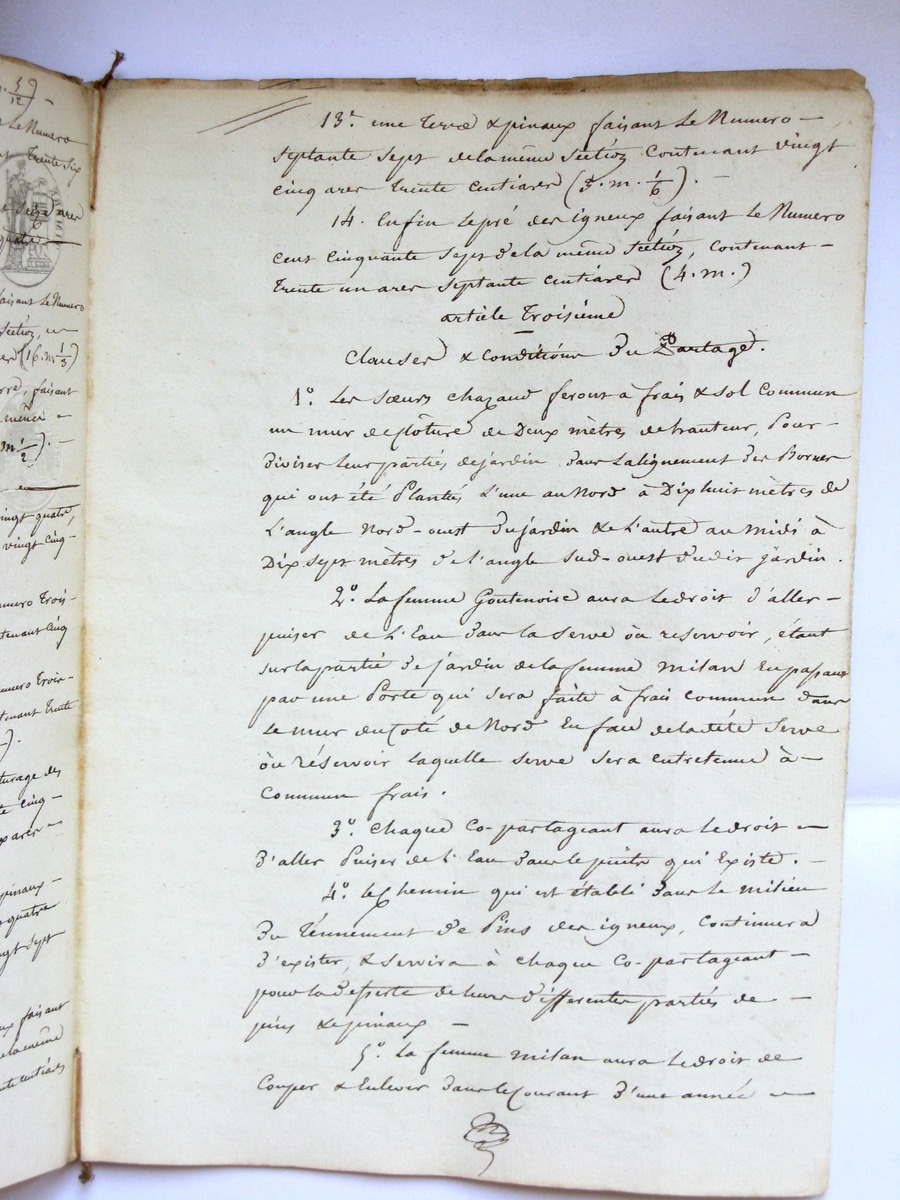 5/12) -
Le Numero
trente six
seize ares
quatre
faisant Le Numero
Section, -
(16. m 1/3)
terre, faisant
même -
m 1/2). -
vingt quatre,
vingt cinq-
numero trois-
contenant cinq
numero trois-
contenant trente
).
pâturage des
cinq -
ares -
& pinaux -
quatre
vingt sept
faisant
de la même
centiares
13°. une terre & pinaux faisant Le Numero -
septante sept de la même Section Contenant vingt
cinq ares trente centiares (3. m. 1/6). -
14. Enfin Le pré des igneux faisant Le Numero
cent cinquante sept de la même Section, Contenant -
trente un ares septante centiares (4. m.)
article troisième
Clauses & Conditions du Partage.
1°. Les sœurs chazaud feront à frais & sol Commun
un mur de clôture de Deux mètres de hauteur, Pour -
diviser leur partiés de jardin dans L'alignement des Bornes
qui ont été Plantés L'une au Nord à Dix huit mètres de
L'angle Nord-ouest du jardin & L'autre au midi à
Dix sept mètres de l'angle sud-ouest dudit jardin.
2°. La femme Goutenoire aura Le droit d'aller -
puiser de L'Eau dans La Serve où reservoir, étant
sur La partié de jardin de La femme milan En passant
par une Porte qui sera faite à frais commun dans
Le mur du Coté de Nord En face de La dite Serve
où réservoir laquelle serve sera entretenue à -
Commun frais.
3°. Chaque Co-partageant aura Le droit -
d'aller Puiser de L'Eau dans Le puits qui Existe. -
4°. Le Chemin qui est établi dans Le milieu
du Ténnement de Pins des igneux, Continuera
d'exister, & servira à chaque Co-partageant -
pour La desserte de leurs différentes partiés de -
pins & epinaux -
5°. La femme milan aura Le droit de
Couper & Enlever dans Le Courant d'une année -